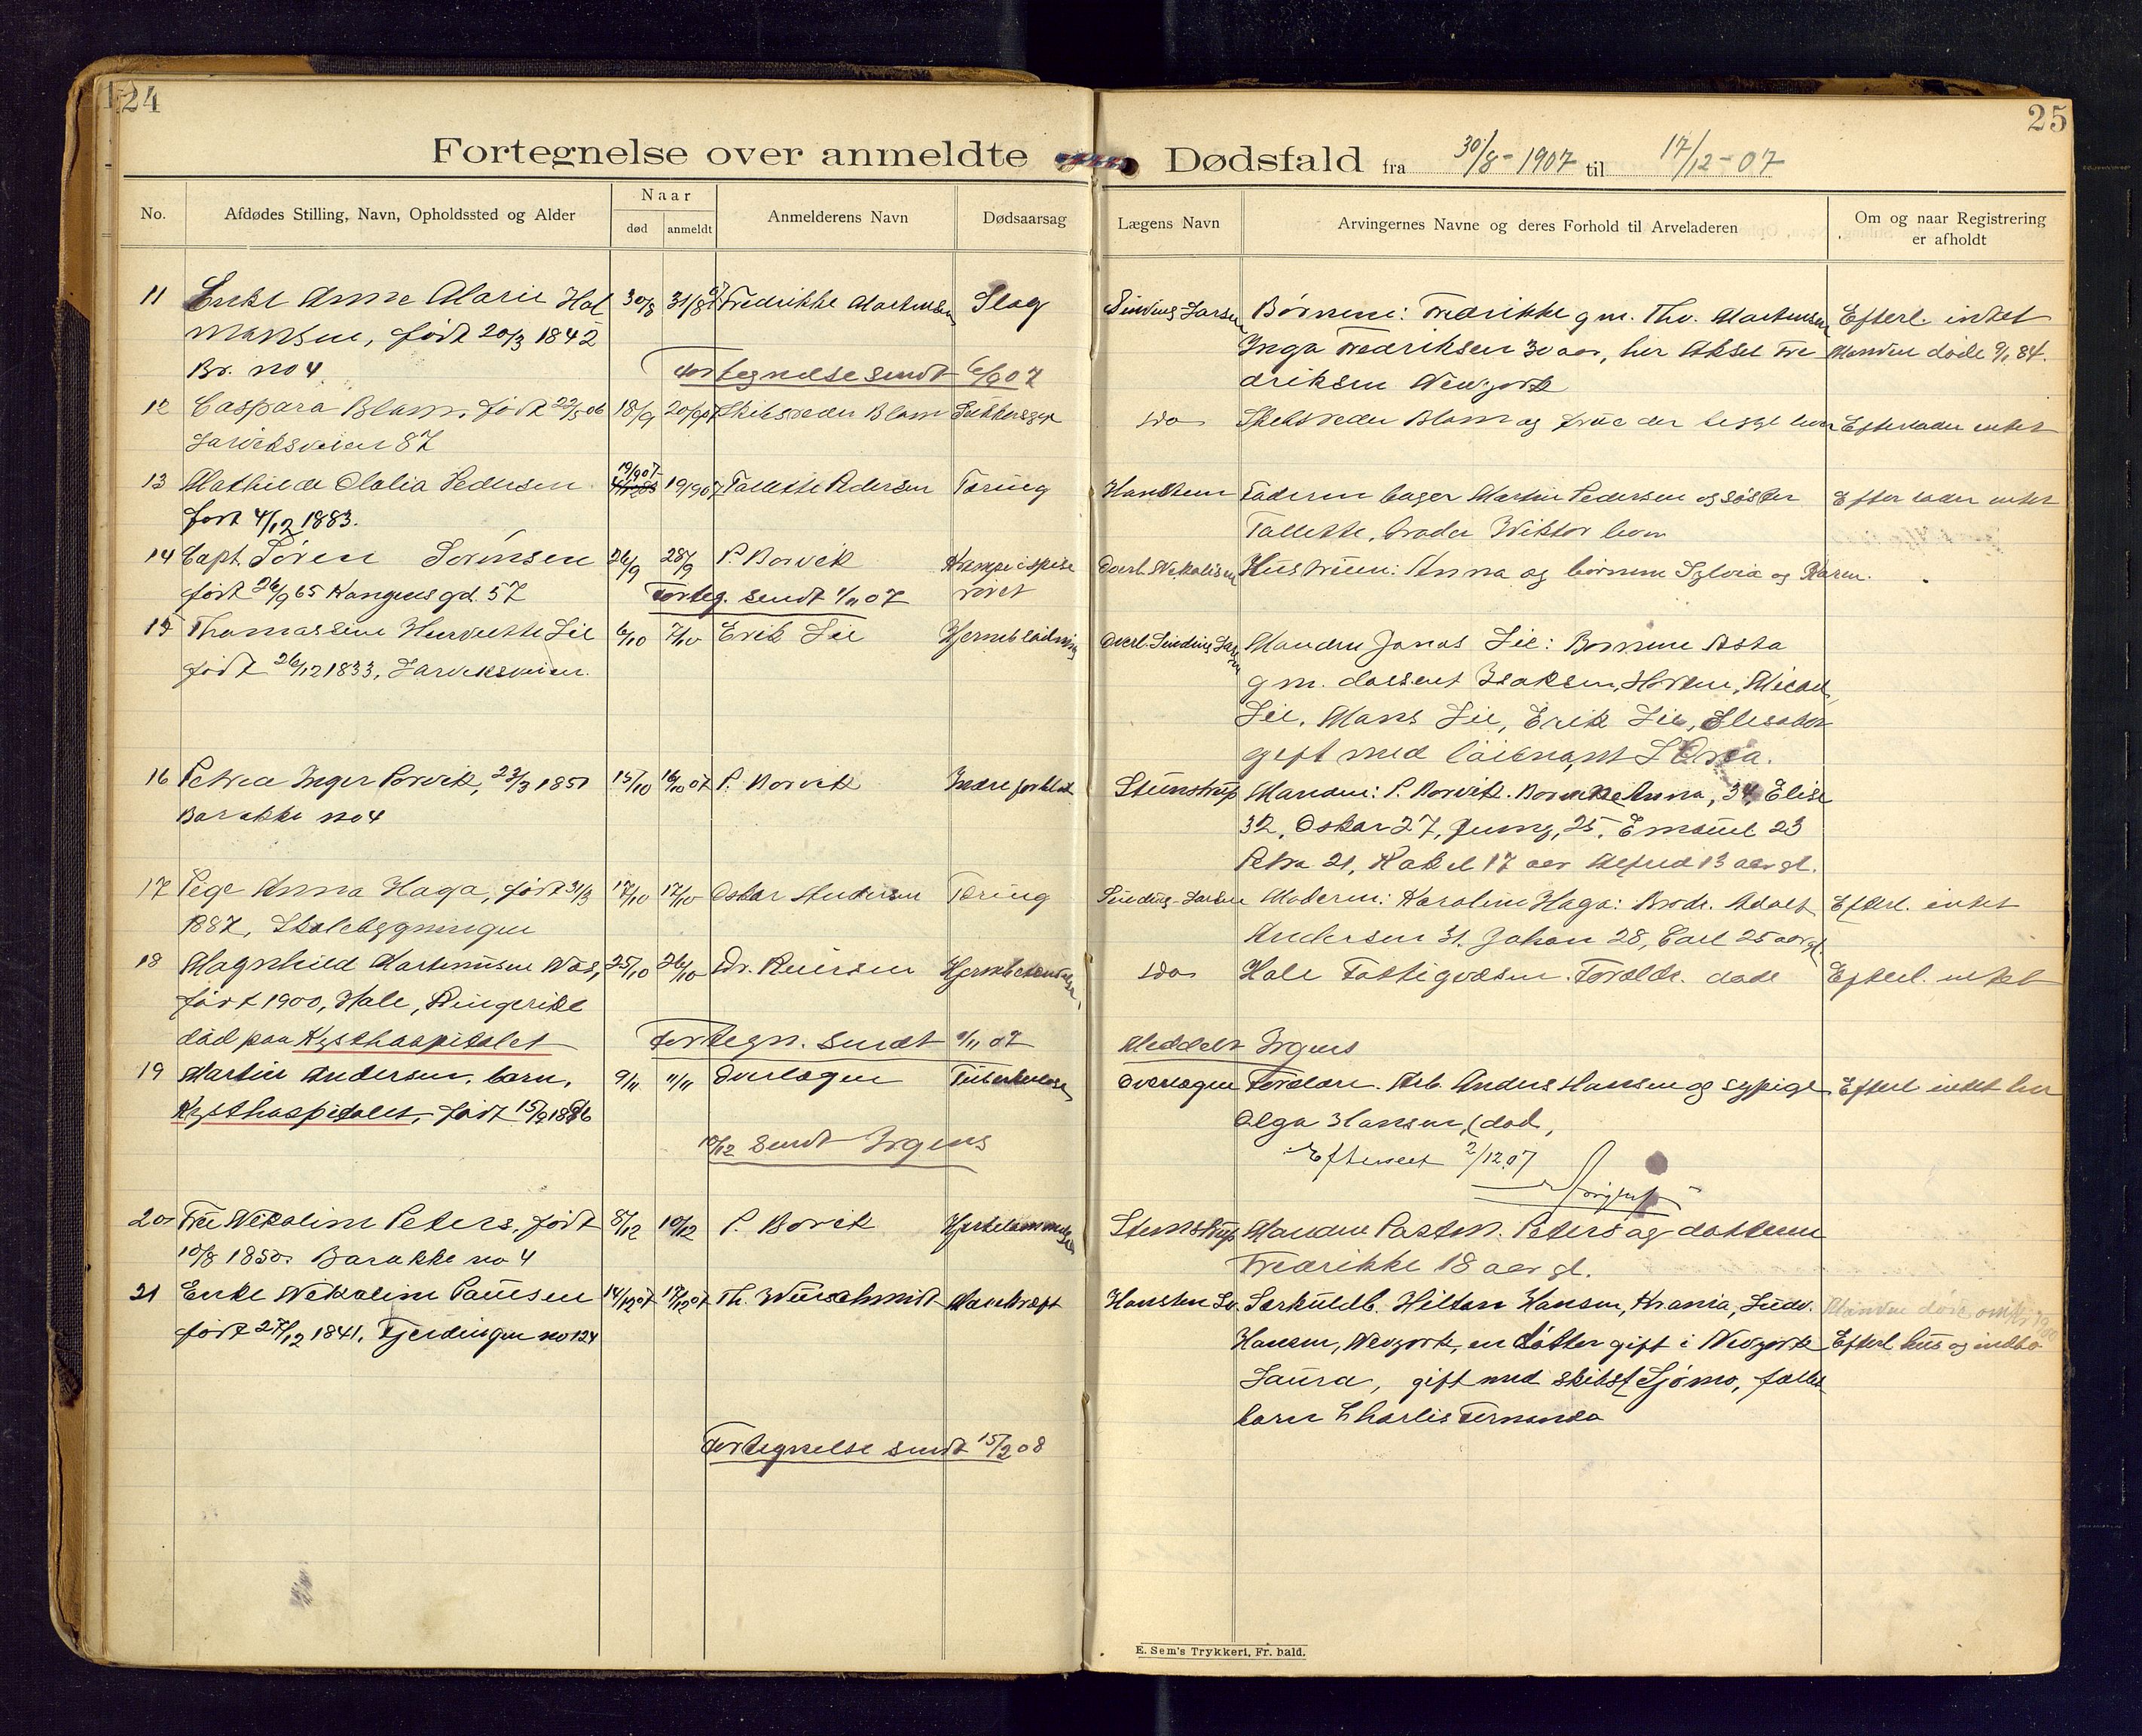 24
25
Fortegnelse over anmeldte Dødsfald fra 30/8-1907 til 17/12-07
No.
Afdødes Stilling, Navn, Opholdssted og Alder
Naar
død
anmeldt
Anmelderens Navn
Dødsaarsag
Lægens Navn
Arvingernes Navne og deres Forhold til Arveladeren
Om og naar Registrering
er afholdt
11 Enke Anne Marie Hal 30/8 31/8 07 Fredrikke Martensen Slag Sinding Larsen Børnene: Fredrikke g m. Tho. Martensen Efterl. intet
mansen, født 20/3 1842 Inga Fredriksen 30 aar, her Aksel Fre Manden døde 9/1 84.
Br. no 4 Fortegnelse sendt 6/9 07 driksen Newyork
12 Caspara Blom, født 22/5 06 18/9 20/9 07 Skibsreder Blom do Skibsreder Blom og frue der begge lever Efterlader intet
Larviksveien 87
13 Mathilde Olalia Pedersen 19/9 07 19/9 07 Tallette Pedersen Tæring Hansteen Faderen bager Martin Pedersen og søster Efterlader intet
født 4/12 1883. Tallette, broder Wiktor lever
14 Capt. Søren Sørensen 26/9 28/9 P. Borvik Kræge i spise Overl. Nikolisen Hustruen: Anna og børnene Sylvia og Karen.
født 26/9 65 Kongensgd. 57 Forteg. sendt 1/11 07 røret
15 Thomassine Henriette Lie 6/10 7/10 Erik Lie Hjerneblødning Overl. Sinding Larsen Manden Jonas Lie: Børnene Asta
født 26/12 1833, Larviksveien. g m. dossent Isaksen, Horten, Micael
Lie, Mons Lie, Erik Lie, Elisabet
gift med løienant L'Orsa.
16 Petrea Inger Borvik, 23/3 1851 15/10 16/10 07 P. Borvik Steenstrup Manden: P. Borvik. Børnene Anna, 34, Elise
Barakke no 4 32, Oskar 27, 25, Emanuel 23
Petra 21, Rakel 17 aar Alfred 13 aar gl.
17 Pege Anna Haga, født 31/3 17/10 17/10 Oskar Andersen Tæring Sinding-Larsen Moderen: Karoline Haga: Brødr. Adolf Efterl. intet
1887, Skolebygningen Andersen 31, Johan 28, Carl 25 aar gl.
18 Magnhild Martinusen Næs, 25/10 26/10 Dr. Reiersen do Hole Fattigvæsen. Forældr. døde Efterl. intet
født 1900, Hole, Ringerike
død paa Kysthospitalet Fortegn. sendt 1/11 07 Meddelt Irgens
19 Martin Andersen, barn, 9/11 11/11 Overlægen Tuberkulose Overlægen Forældre. Arb. Anders Hansen og sypige Efterl intet her
Kysthospitalet, født 15/9 1886 Olga Hansen, (død,
10/12 sendt Irgens
Efterseet 2/12 07
20 Fru Nikoline Peters, født 8/12 10/12 P. Borvik Steenstrup Manden Postm. Peters og datteren
10/8 1850. Barakke no 4 Fredrikke 18 aar gl.
21 Enke Nikoline Paulsen 14/12 07 17/12 07 Th. Würschmidt Marekræft Hansteen Sørkuldb. Hilton Hansen, Krania, Ludv. Manden døde
født 27/12 1841, Fjerdingen no 124 Hansen, Newyork, en datter gift i Newyork Efterl hus og indbo
Laura, gift med skibsf Sjømo,
barn Charlis Fernanda
Fortegnelse sendt 15/2 08
E. Sem's Trykkeri, Fr. hald.